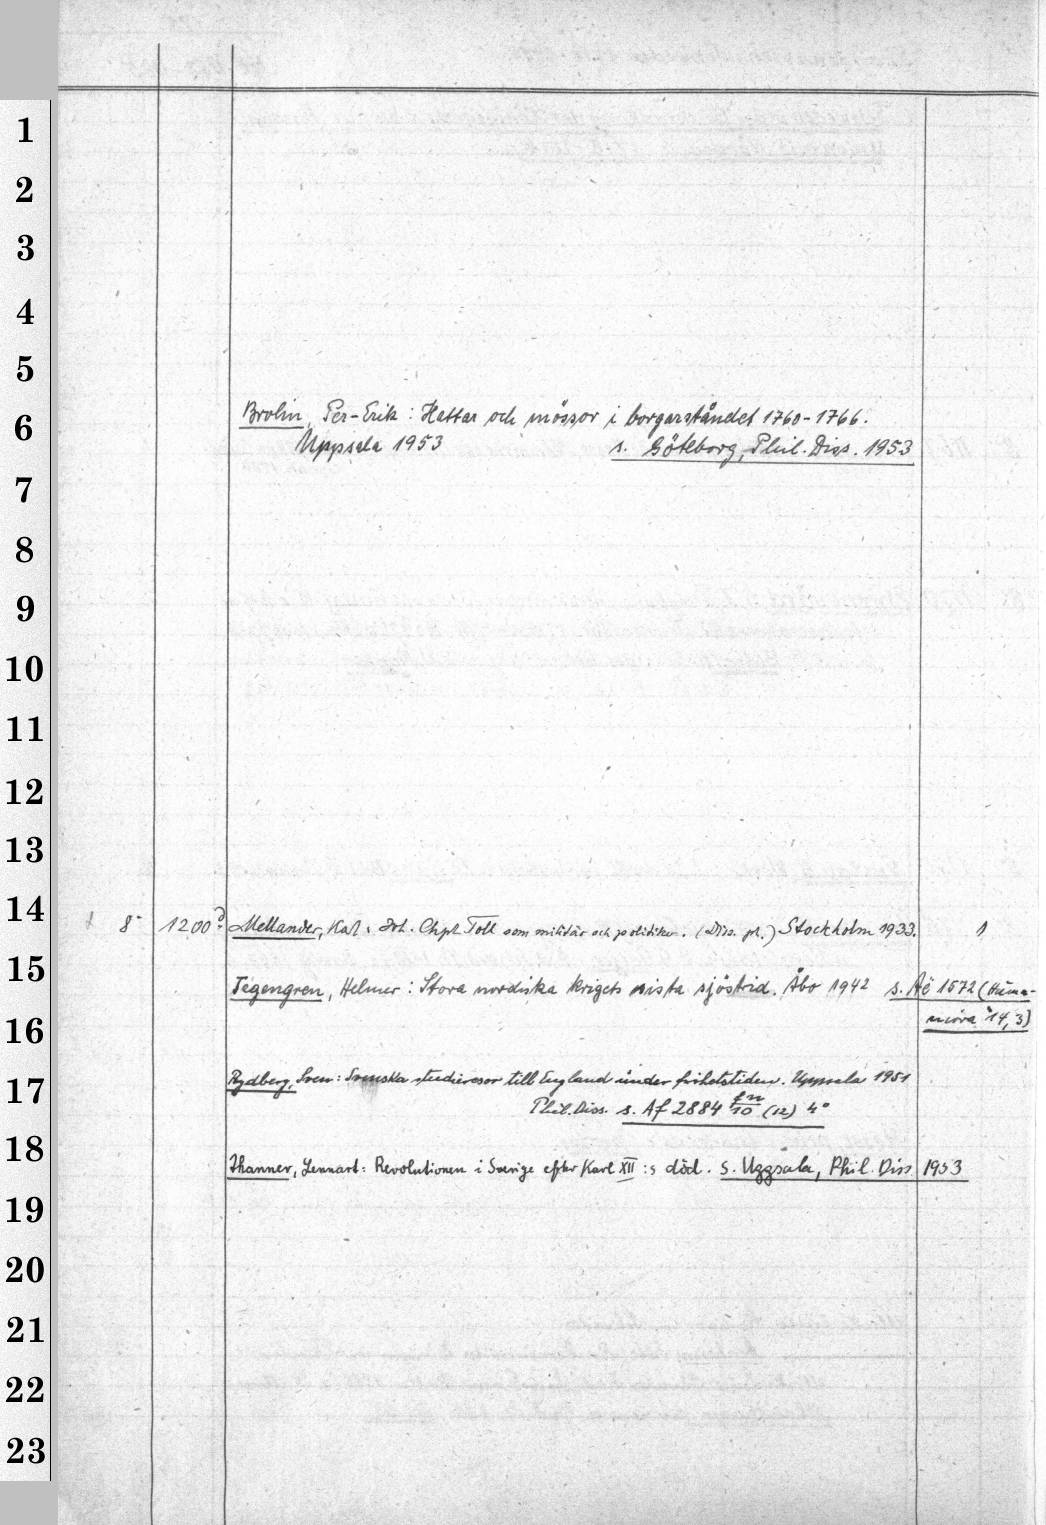 1
2
3
4
5
6 Brolin, Per-Erik: Hattar och mössor i borgarståndet 1760-1766.
Uppsala 1953 s. Göteborg, Phil. Diss. 1953
7
8
9
10
11
12
13
14 8° 1200 Mellander, Karl: Joh. Chph Toll som militär och politiker. (Diss. ph.) Stockholm 1933. 1
15 Tegengren, Helmer: Stora nordiska krigets sista sjöstrid. Åbo 1942 s. Aë 1572 (Huma-
16 niora 14, 3)
17 Rydberg, Sven: Svenska studieresor till England under frihetstiden. Uppsala 1951
Phil. Diss. s. Af 2884 fn/10 (12) 4°
18 Thanner, Lennart: Revolutionen i Sverige efter Karl XII:s död. s. Uppsala, Phil. Diss 1953
19
20
21
22
23